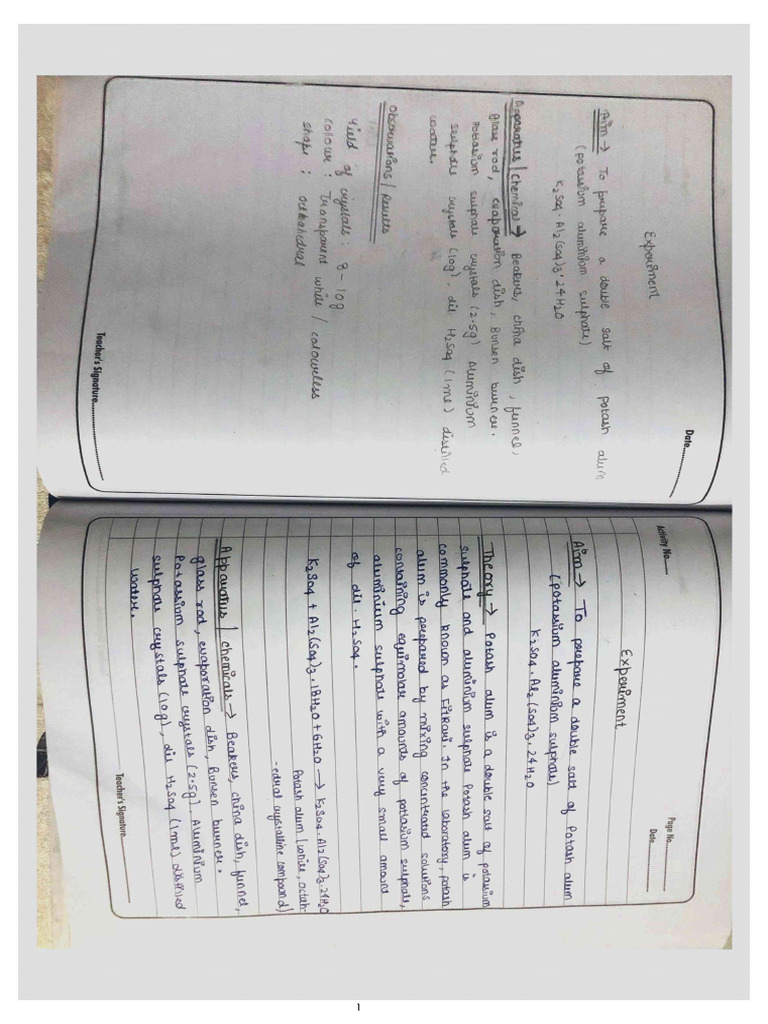 Date..........
Experiment
Aim → To prepare a double salt of potash alum
(potassium aluminium sulphate)
K2So4. Al2(So4)3.24H2O
Apparatus / chemical → Beakers, china dish, funnel,
glass rod, evaporation dish, Bunsen burner.
Potassium sulphate crystals (2.5g) Aluminium
sulphate crystals (10g), dil H2So4 (1ml) distilled
water.
Observations / Results
Yield of crystals : 8-10g
Colour : Transparent white / colourless
shape : octahedral
Teacher's Signature..........
Activity No........
Page No..........
Date..........
Experiment
Aim → To prepare a double salt of Potash alum
(potassium aluminium sulphate)
K2So4. Al2(So4)3. 24H2O
Theory → Potash alum is a double salt of potassium
sulphate and aluminium sulphate Potash alum is
commonly known as Fitkari. In the laboratory, potash
alum is prepared by mixing concentrated solutions
containing equimolar amounts of potassium sulphate,
aluminium sulphate with a very small amount
of dil. H2So4.
K2So4 + Al2(So4)3.18H2O + 6H2O → K2So4. Al2(So4)3.24H2O
Potash alum (white, octah-
-edral crystalline compound)
Apparatus / chemicals → Beakers, china dish, funnel,
glass rod, evaporation dish, Bunsen burner.
Potassium sulphate crystals (2.5g), Aluminium
sulphate crystals (10g), dil H2So4 (1ml) distilled
water.
Teacher's Signature..........
1